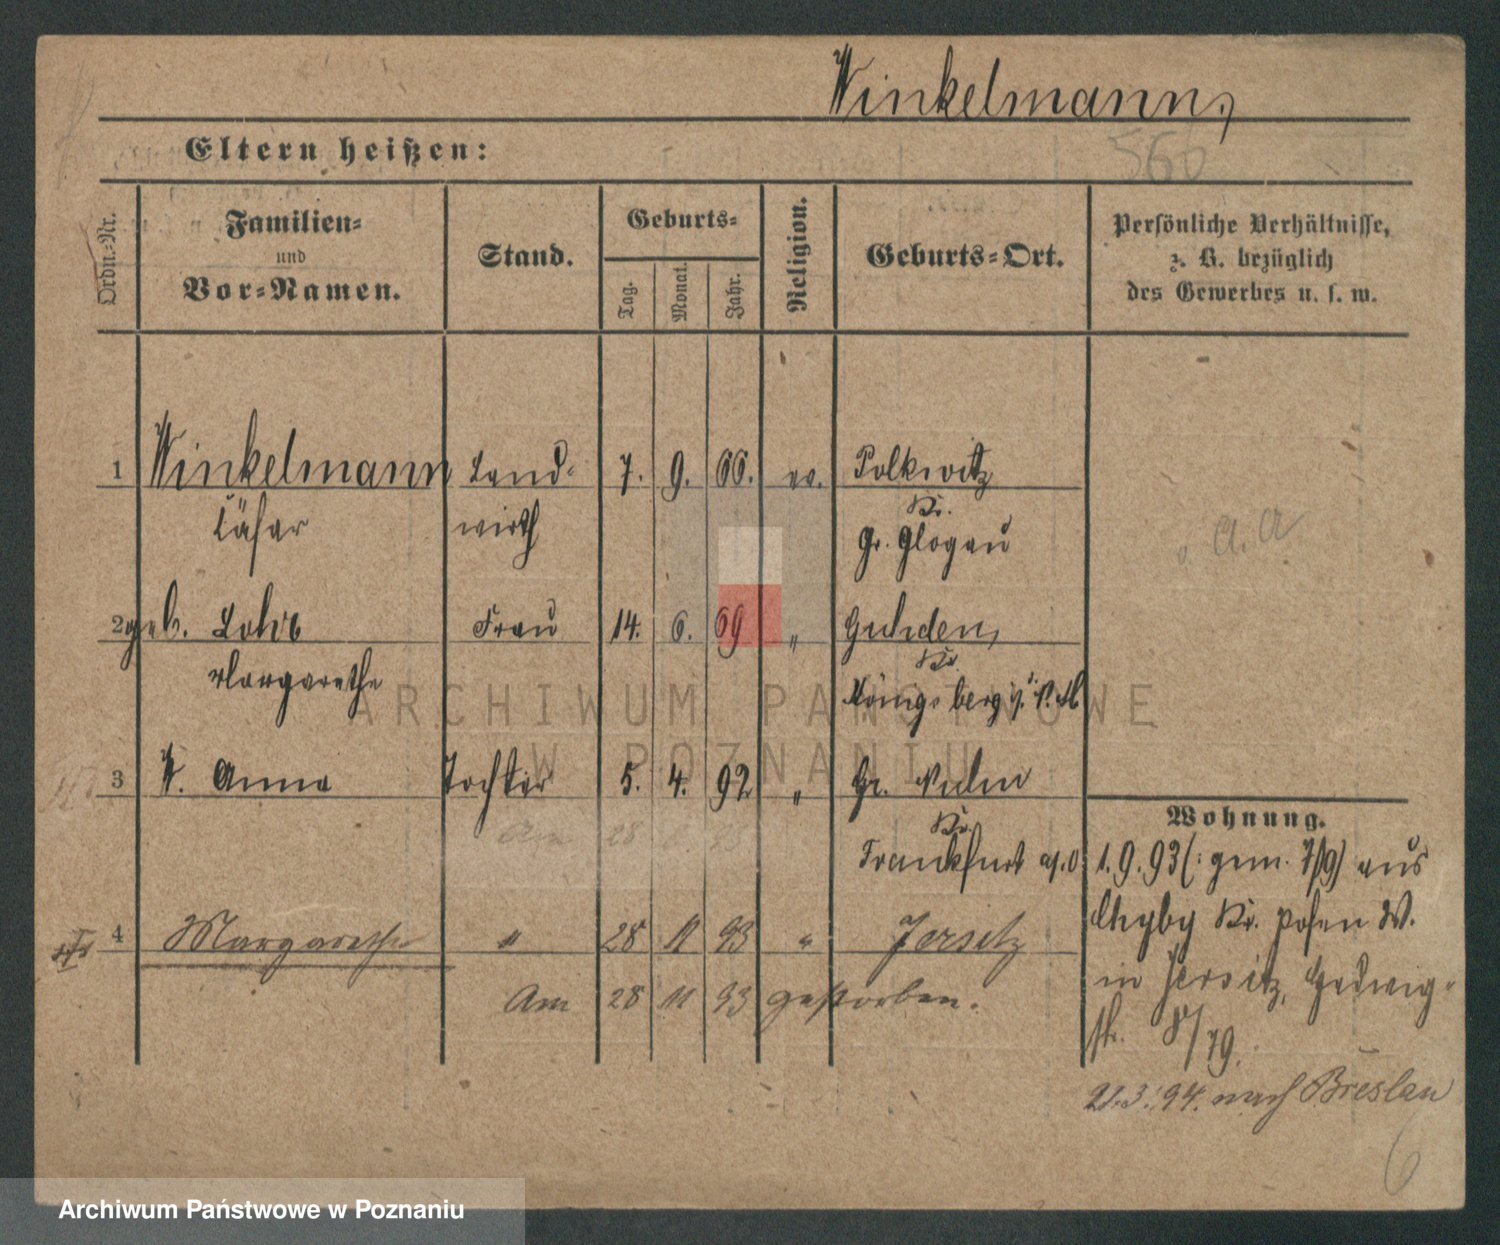 Winkelmann,
560
Eltern heißen:
Ordn.-Nr.
Familien-
und
Vor-Namen.
Stand.
Geburts-
Tag.
Monat.
Jahr.
Religion.
Geburts-Ort.
Persönliche Verhältnisse,
z. B. bezüglich
des Gewerbes u. s. w.
1 Winkelmann Land- 7. 9. 66. ev. Polkwitz
Cäsar wirth Kr.
Gr. Glogau
a. a
2 geb. Frau 14. 6. 69 „ Guhden,
Margarethe Kr.
Königsberg i. N.M.
ARCHIWUM PAŃSTWOWE
W POZNANIU
3 W. Anna Tochter 5. 4. 92 „ Gr.
Kr.
Frankfurt a/O
Wohnung.
1.9.93 (: gem. 7/9) aus
Chyby Kr. Posen W.
in Jersitz, Hedwig-
str. 79.
21.3.94. nach Breslau
4 Margarethe " 28 11 93 " Jersitz
Am 28 11 93 gestorben.
6
Archiwum Państwowe w Poznaniu